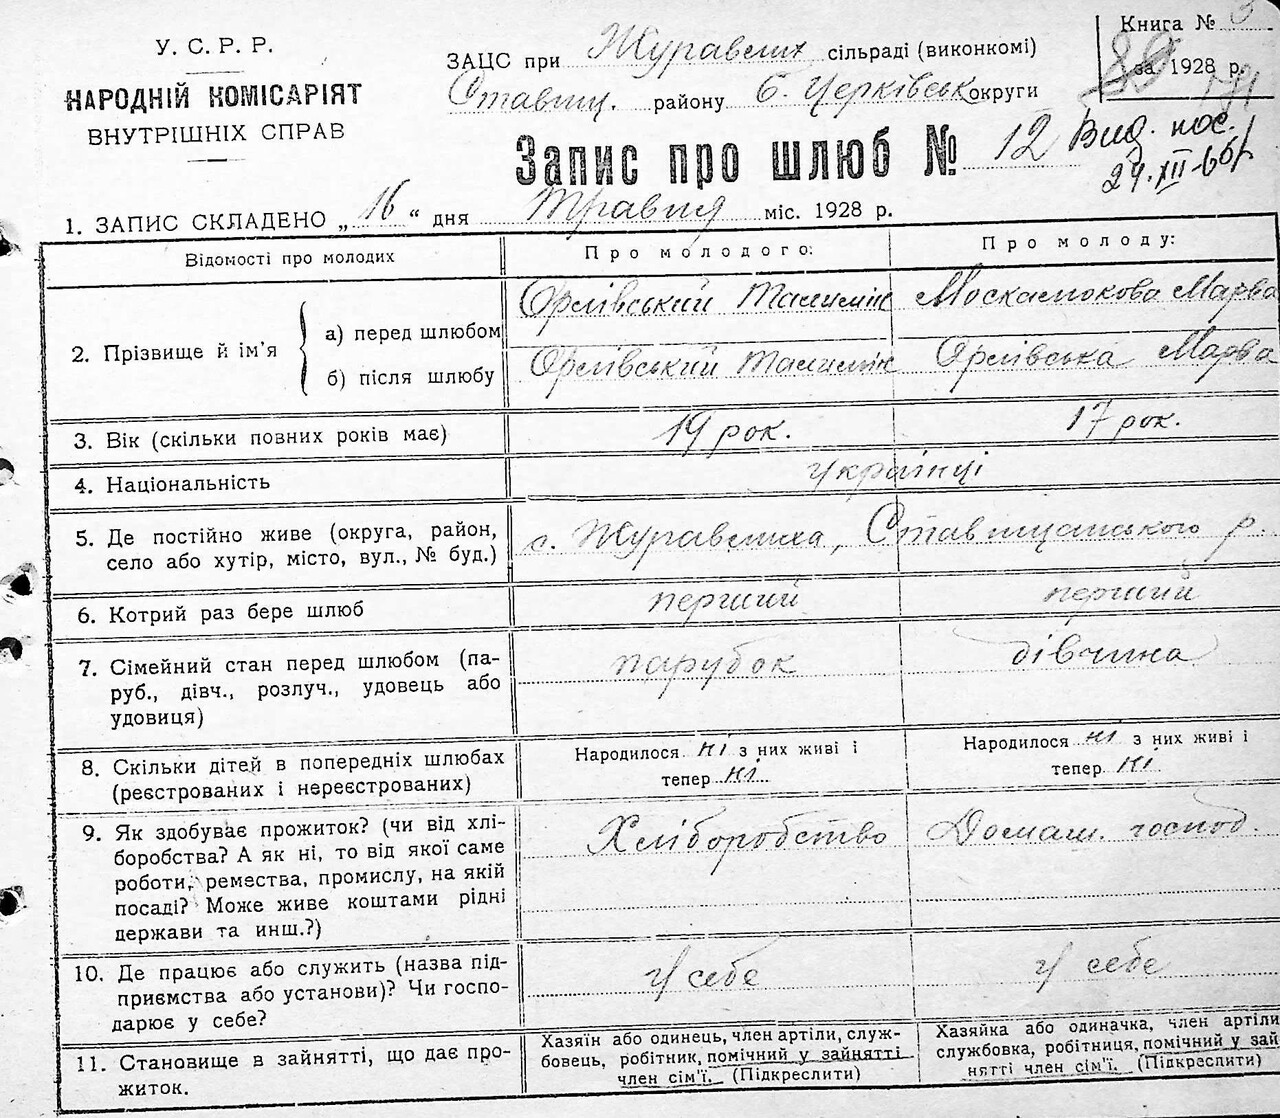 У. С. Р. Р.
НАРОДНІЙ КОМІСАРІЯТ
ВНУТРІШНІХ СПРАВ
ЗАЦС при Журавлих сільраді (виконкомі)
Ставищ. району Б. Церківськ округи
Книга №
за 1928 р.
Запис про шлюб № 12
Вид. пос.
24.XII-66
1. ЗАПИС СКЛАДЕНО „16“ дня Травня міс. 1928 р.
Відомості про молодих
Про молодого:
Про молоду:
2. Прізвище й ім'я
а) перед шлюбом
Орлівський Талимін
Москалюкова Марва
б) після шлюбу
Орлівський Талимін
Орлівська Марва
3. Вік (скільки повних років має)
19 рок.
17 рок.
4. Національність
українці
5. Де постійно живе (округа, район,
село або хутір, місто, вул., № буд.)
с. Журавлиха, Ставищанського р.
6. Котрий раз бере шлюб
перший
перший
7. Сімейний стан перед шлюбом (па-
руб., дівч., розлуч., удовець або
удовиця)
парубок
дівчина
8. Скільки дітей в попередніх шлюбах
(реєстрованих і нереєстрованих)
Народилося ні з них живі і
тепер ні
Народилося ні з них живі і
тепер ні
9. Як здобуває прожиток? (чи від хлі-
боробства? А як ні, то від якої саме
роботи, ремества, промислу, на якій
посаді? Може живе коштами рідні
держави та инш.?)
Хліборобство
Домаш. господ.
10. Де працює або служить (назва під-
приємства або установи)? Чи госпо-
дарює у себе?
у себе
у себе
11. Становище в зайнятті, що дає про-
житок.
Хазяїн або одинець, член артіли, служ-
бовець, робітник, помічний у зайнятті
член сім'ї. (Підкреслити)
Хазяйка або одиначка, член артіли
службовка, робітниця, помічний у зай
нятті член сім'ї. (Підкреслити)